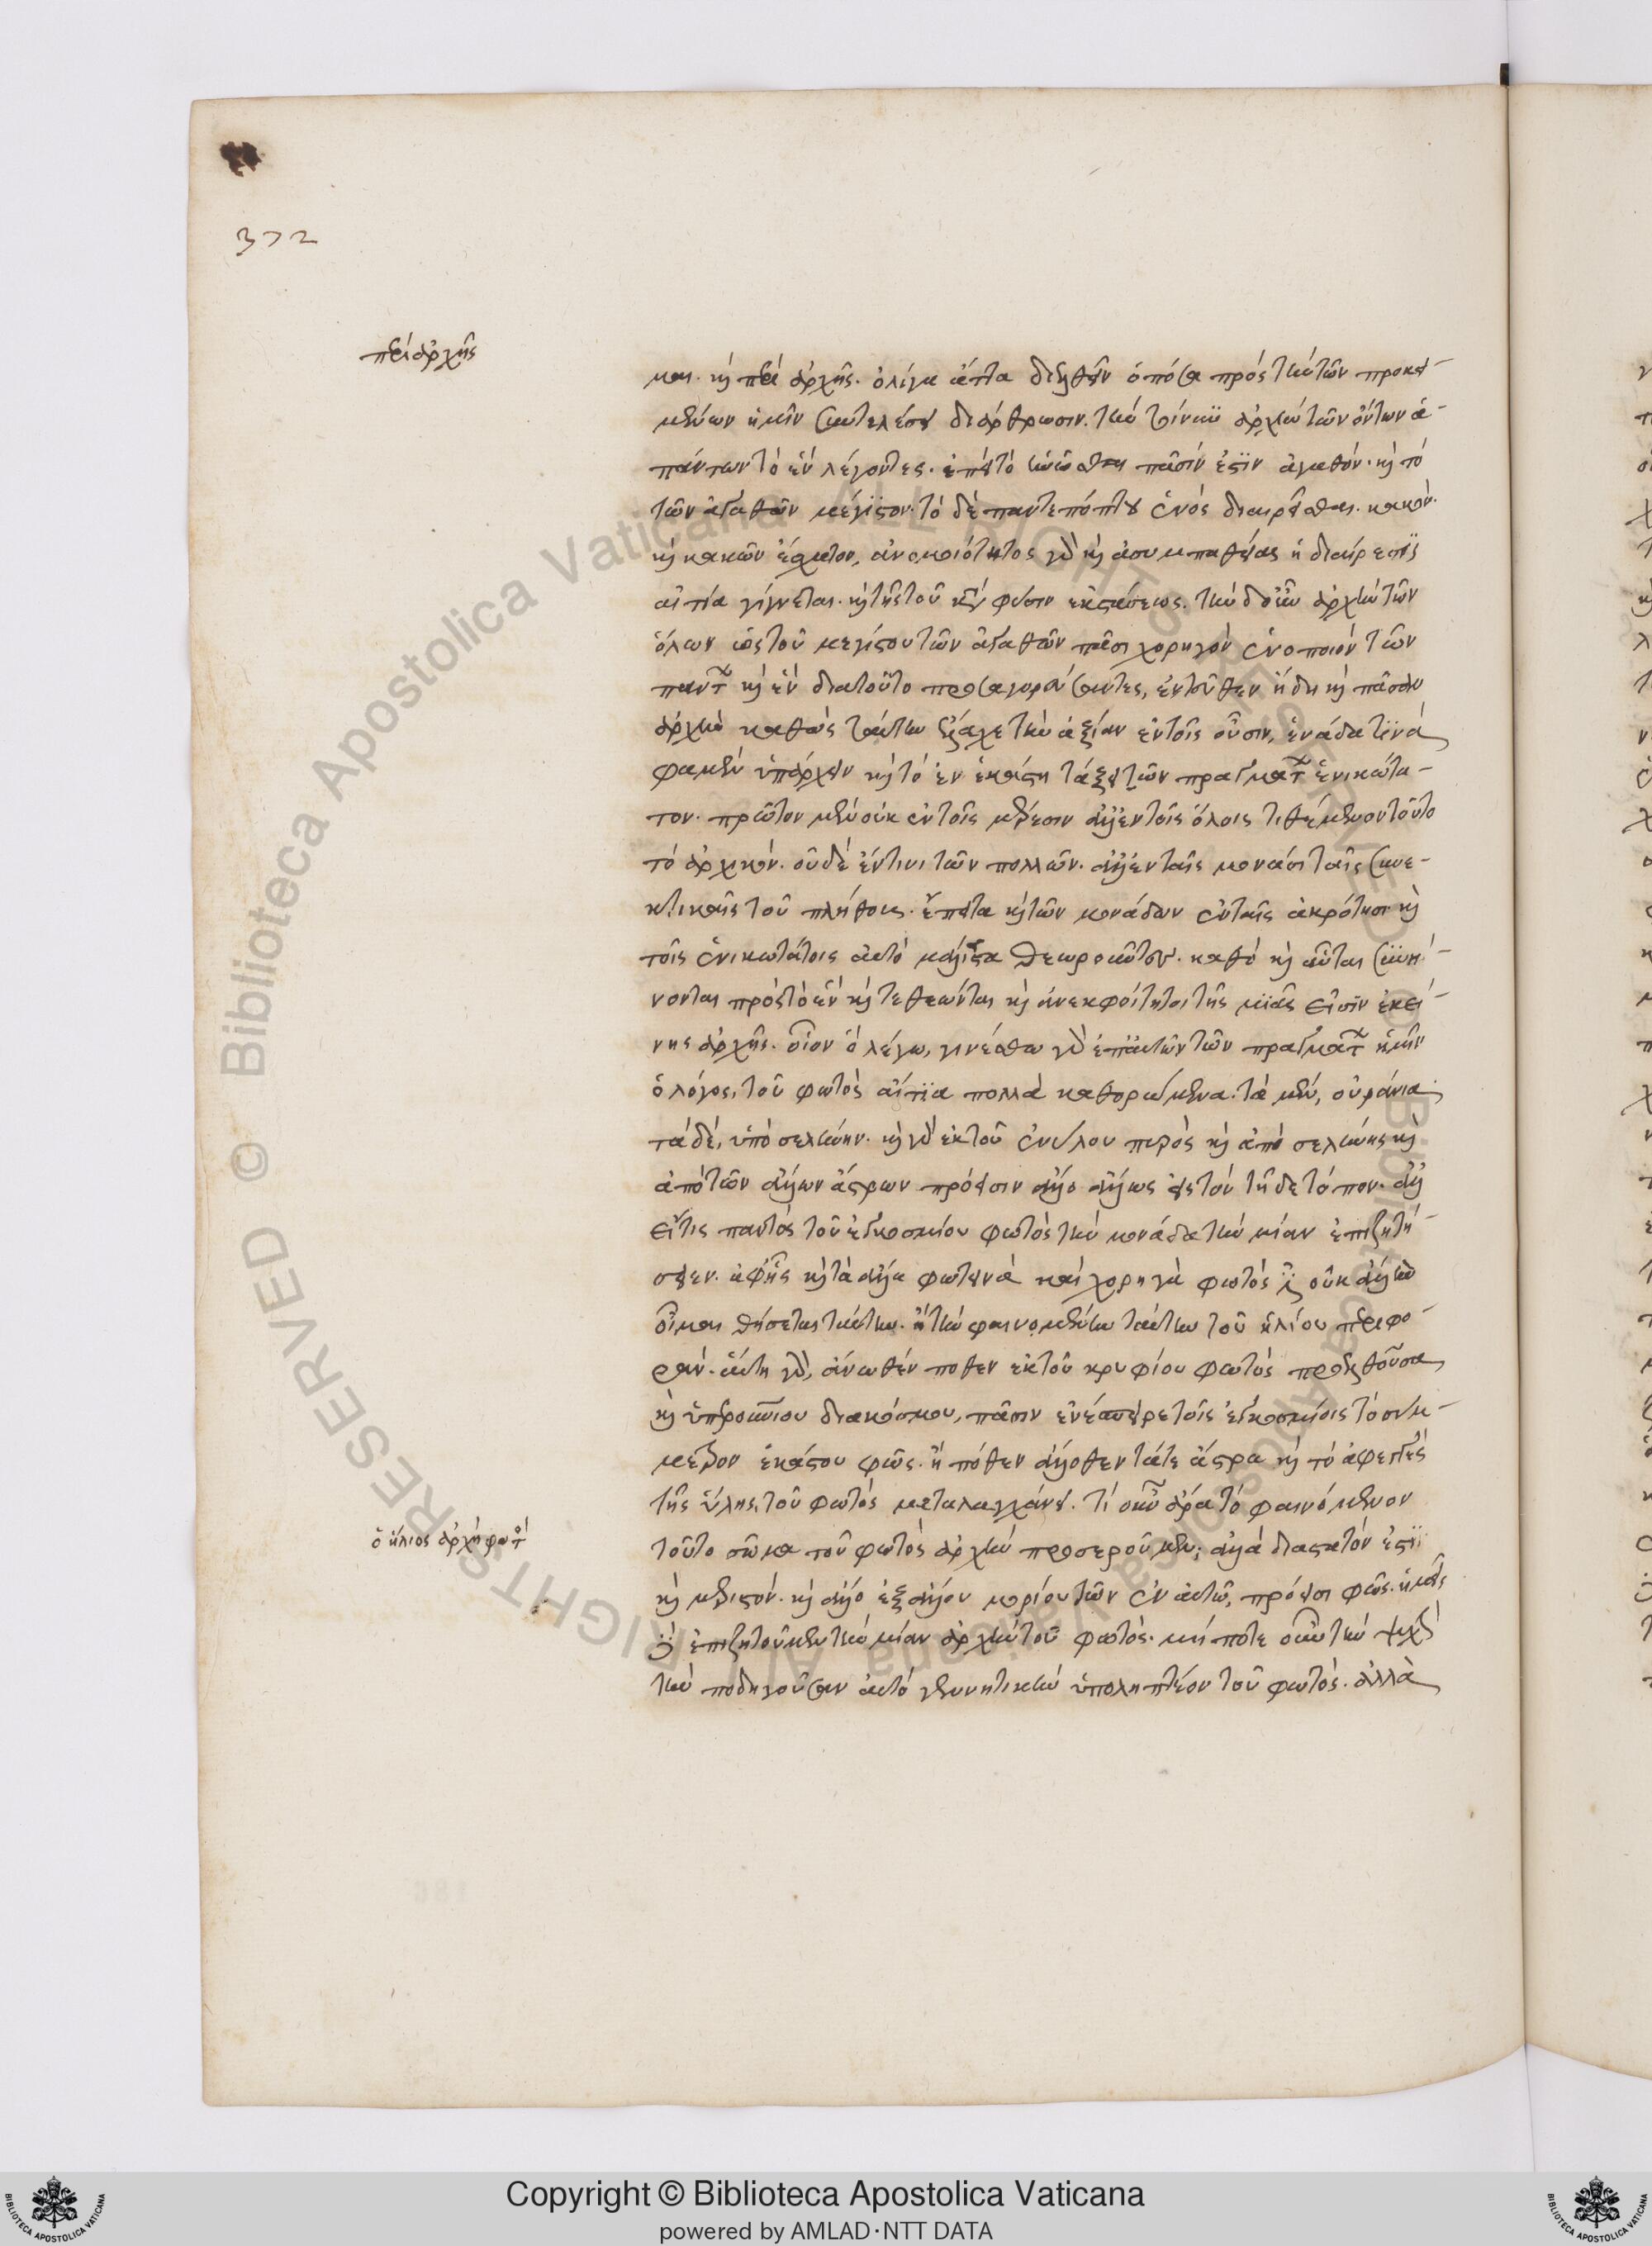 372
περὶ ἀρχῆς
μαι. καὶ περὶ ἀρχῆς. ὀλίγα ἄττα διελθεῖν ὁπόσα πρὸς τὴν τῶν προκει-
μένων ἡμῖν συντελέσει διάρθρωσιν. τὴν τοίνυν ἀρχὴν τῶν ὄντων ἁ-
πάντων τὸ ἓν λέγοντες. ἐπεὶ τὸ ἡνῶσθαι πᾶσίν ἐστιν ἀγαθόν. καὶ τὸ
τῶν ἀγαθῶν μέγιστον. τὸ δὲ παντεπόπτου ἑνὸς διαιρεῖσθαι. κακόν.
καὶ κακῶν ἔσχατον, ἀνομοιότητος γὰρ καὶ ἀσυμπαθείας ἡ διαίρεσις
αἰτία γίγνεται. καὶ τῆς τοῦ κατὰ φύσιν ἐκστάσεως. τὴν δ' οὖν ἀρχὴν τῶν
ὅλων ὡς τοῦ μεγίστου τῶν ἀγαθῶν πᾶσι χορηγὸν ἑνοποιὸν τῶν
πάντων καὶ ἓν διατοῦτο προσαγορεύσαντες, ἐντεῦθεν ἤδη καὶ πᾶσαν
ἀρχὴν καθὼς ταύτην ἔλαχε τὴν ἀξίαν ἐν τοῖς οὖσιν, ἑνάδα τινά
φαμὲν ὑπάρχειν καὶ τὸ ἐν ἑκάστη τάξει τῶν πραγμάτων ἑνικώτα-
τον. πρῶτον μὲν οὐκ ἐν τοῖς μέρεσιν ἀλλ' ἐν τοῖς ὅλοις τιθέμενον τοῦτο
τὸ ἀρχικόν. οὐδὲ ἔν τινι τῶν πολλῶν. ἀλλ' ἐν ταῖς μονάσι ταῖς συνε-
κτικαῖς τοῦ πλήθους. ἔπειτα καὶ τῶν μονάδων ἐν ταῖς ἀκρότησι καὶ
τοῖς ἑνικωτάτοις αὐτὸ μάλιστα θεωροῦντες. καθὸ καὶ αὗται συνή-
νονται πρὸς τὸ ἓν καὶ τεθέωνται καὶ ἀνεκφοίτητοι τῆς μιᾶς εἰσὶν ἐκεί-
νης ἀρχῆς. οἷον ὃ λέγω, γινέσθω γὰρ ἐπ' αὐτῶν τῶν πραγμάτων ἡμῖν
ὁ λόγος, τοῦ φωτὸς αἴτια πολλὰ καθορῶμενα. τὰ μὲν, οὐράνια
τὰ δὲ, ὑπὸ σελήνην. καὶ γὰρ ἐκ τοῦ ἐνύλου πυρὸς καὶ ἀπὸ σελήνης καὶ
ἀπὸ τῶν ἄλλων ἄστρων πρόεισιν ἄλλο ἄλλως εἰς τόν τῆδε τόπον. ἀλλ'
εἴ τις παντὸς τοῦ ἐγκοσμίου φωτὸς τὴν μονάδα τὴν μίαν ἐπιζητή-
σειεν. ἀφ' ἧς καὶ τὰ ἄλλα φωτεινὰ καὶ χορηγὰ φωτός ἐστι οὐκ ἄλλην
οἶμαι θήσεται ταύτην. ἢ τὴν φαινομένην ταύτην τοῦ ἡλίου περιφο-
ράν. αὕτη γὰρ, ἄνωθέν ποθεν ἐκ τοῦ κρυφίου φωτὸς προελθοῦσα
καὶ ὑπερουρανίου διακόσμου, πᾶσιν ἐνέσπειρε τοῖς ἐγκοσμίοις τὸ σύμ-
μετρον ἑκάστου φῶς. ἢ πόθεν ἄλλοθεν τά τε ἄστρα καὶ τὸ ἀφεγγὲς
τῆς ὕλης, τοῦ φωτὸς μεταλαγχάνει. τί οὖν ἄρα τὸ φαινόμενον
τοῦτο σῶμα τοῦ φωτὸς ἀρχὴν προσεροῦμεν; ἀλλὰ διαστατόν ἐστι
καὶ μεριστόν. καὶ ἄλλο ἐξ ἄλλου μορίου τῶν ἐν αὐτῶ, πρόεισι φῶς. ἡμεῖς
δὲ ἐπιζητοῦμεν τὴν μίαν ἀρχὴν τοῦ φωτός. μή ποτε οὖν τὴν ψυχὴν
τὴν ποδηγοῦσαν αὐτὸ γεννητικὴν ὑποληπτέον τοῦ φωτός. ἀλλὰ
ὁ ἥλιος ἀρχὴ φωτός
Copyright © Biblioteca Apostolica Vaticana
powered by AMLAD·NTT DATA